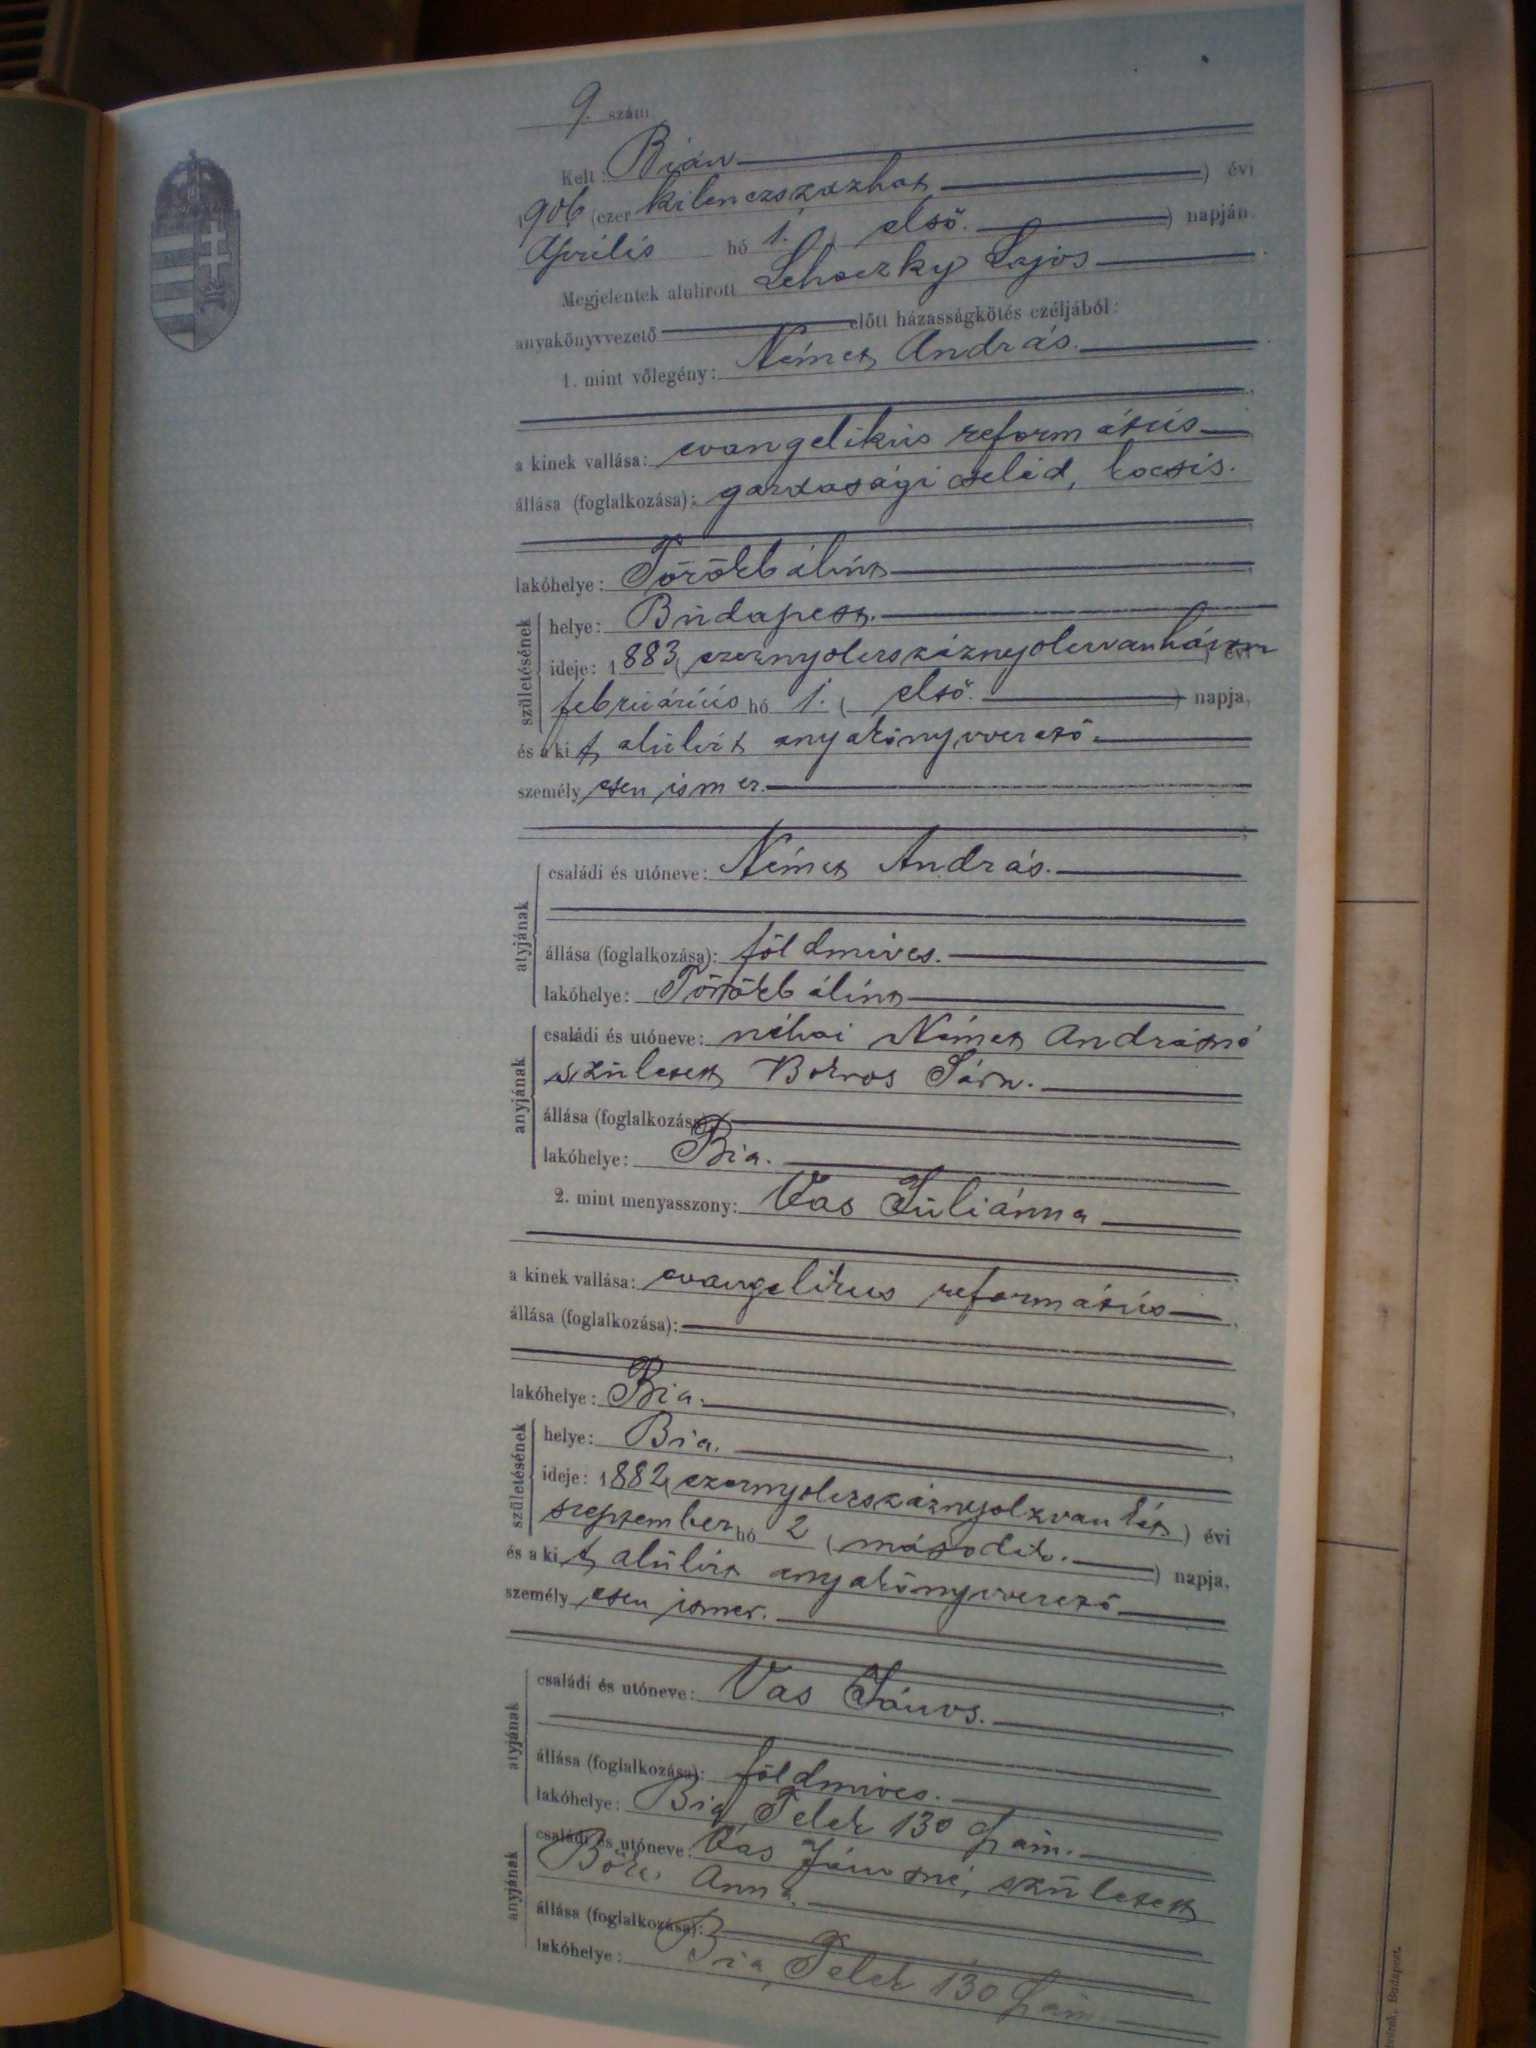 9. szám
Kelt: Bián
1906 (ezer kilenczszázhat ) évi
Április hó 1. ( első. ) napján.
Megjelentek alulirott Lehoczky Lajos
anyakönyvvezető előtt házasságkötés czéljából:
1. mint vőlegény: Német András.
a kinek vallása: evangelikus református
állása (foglalkozása): gazdasági cseléd, kocsis.
lakóhelye: Törökbálint
születésének
helye: Budapest.
ideje: 1883 (ezernyolczszáznyolczvanhárom) évi
februárius hó 1. ( első. ) napja,
és a kit alulírt anyakönyvvezető
személyesen ismer.
atyjának
családi és utóneve: Német András.
állása (foglalkozása): földmives.
lakóhelye: Törökbálint
anyjának
családi és utóneve: néhai Német Andrásné
született Boros Sára.
állása (foglalkozása):
lakóhelye: Bia.
2. mint menyasszony: Vas Juliánna
a kinek vallása: evangelikus református
állása (foglalkozása):
lakóhelye: Bia.
születésének
helye: Bia.
ideje: 1882 (ezernyolczszáznyolczvankét) évi
szeptember hó 2 ( második. ) napja,
és a kit alulírt anyakönyvvezető
személyesen ismer.
atyjának
családi és utóneve: Vas János.
állása (foglalkozása): földmives.
lakóhelye: Bia, Telek 130 szám.
anyjának
családi és utóneve: Vas Jánosné, született
Anna.
állása (foglalkozása):
lakóhelye: Bia, Telek 130 szám.
Budapest.